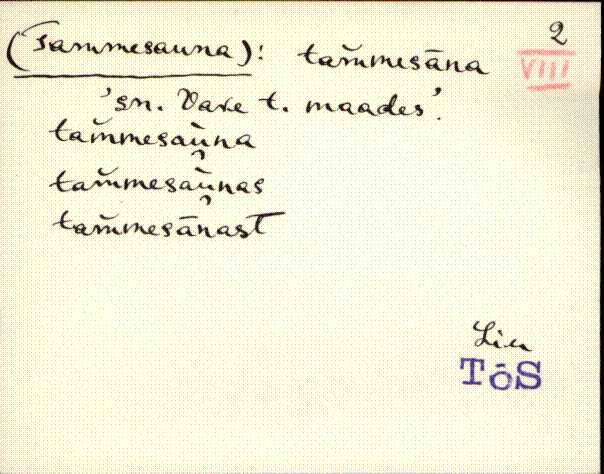 2
(Tammesauna): tam̆mesāna
VIII
'sn. Vare t. maades'.
tam̆mesau̯na
tam̆mesau̯nas
tam̆mesānasT
Lin
TõS